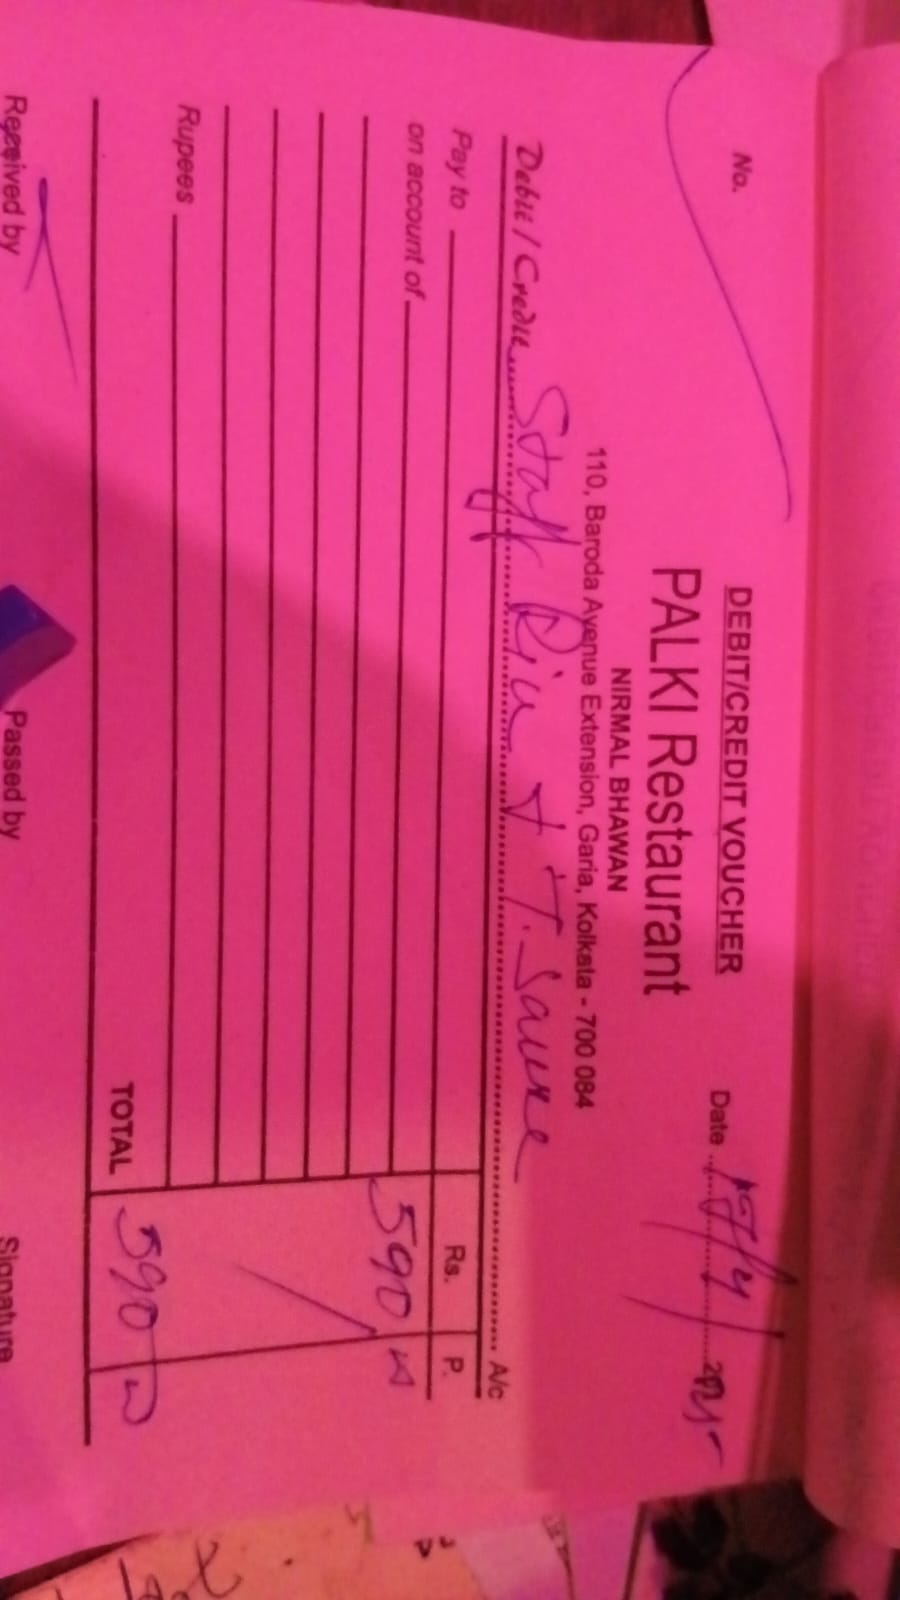 No.
DEBIT/CREDIT VOUCHER
Date
PALKI Restaurant
NIRMAL BHAWAN
110, Baroda Avenue Extension, Garia, Kolkata - 700 084
Debit / Credit Staff Rice + T. Sauce A/c
Pay to Rs. P.
on account of 590
Rupees
TOTAL 590
Received by Passed by Signature